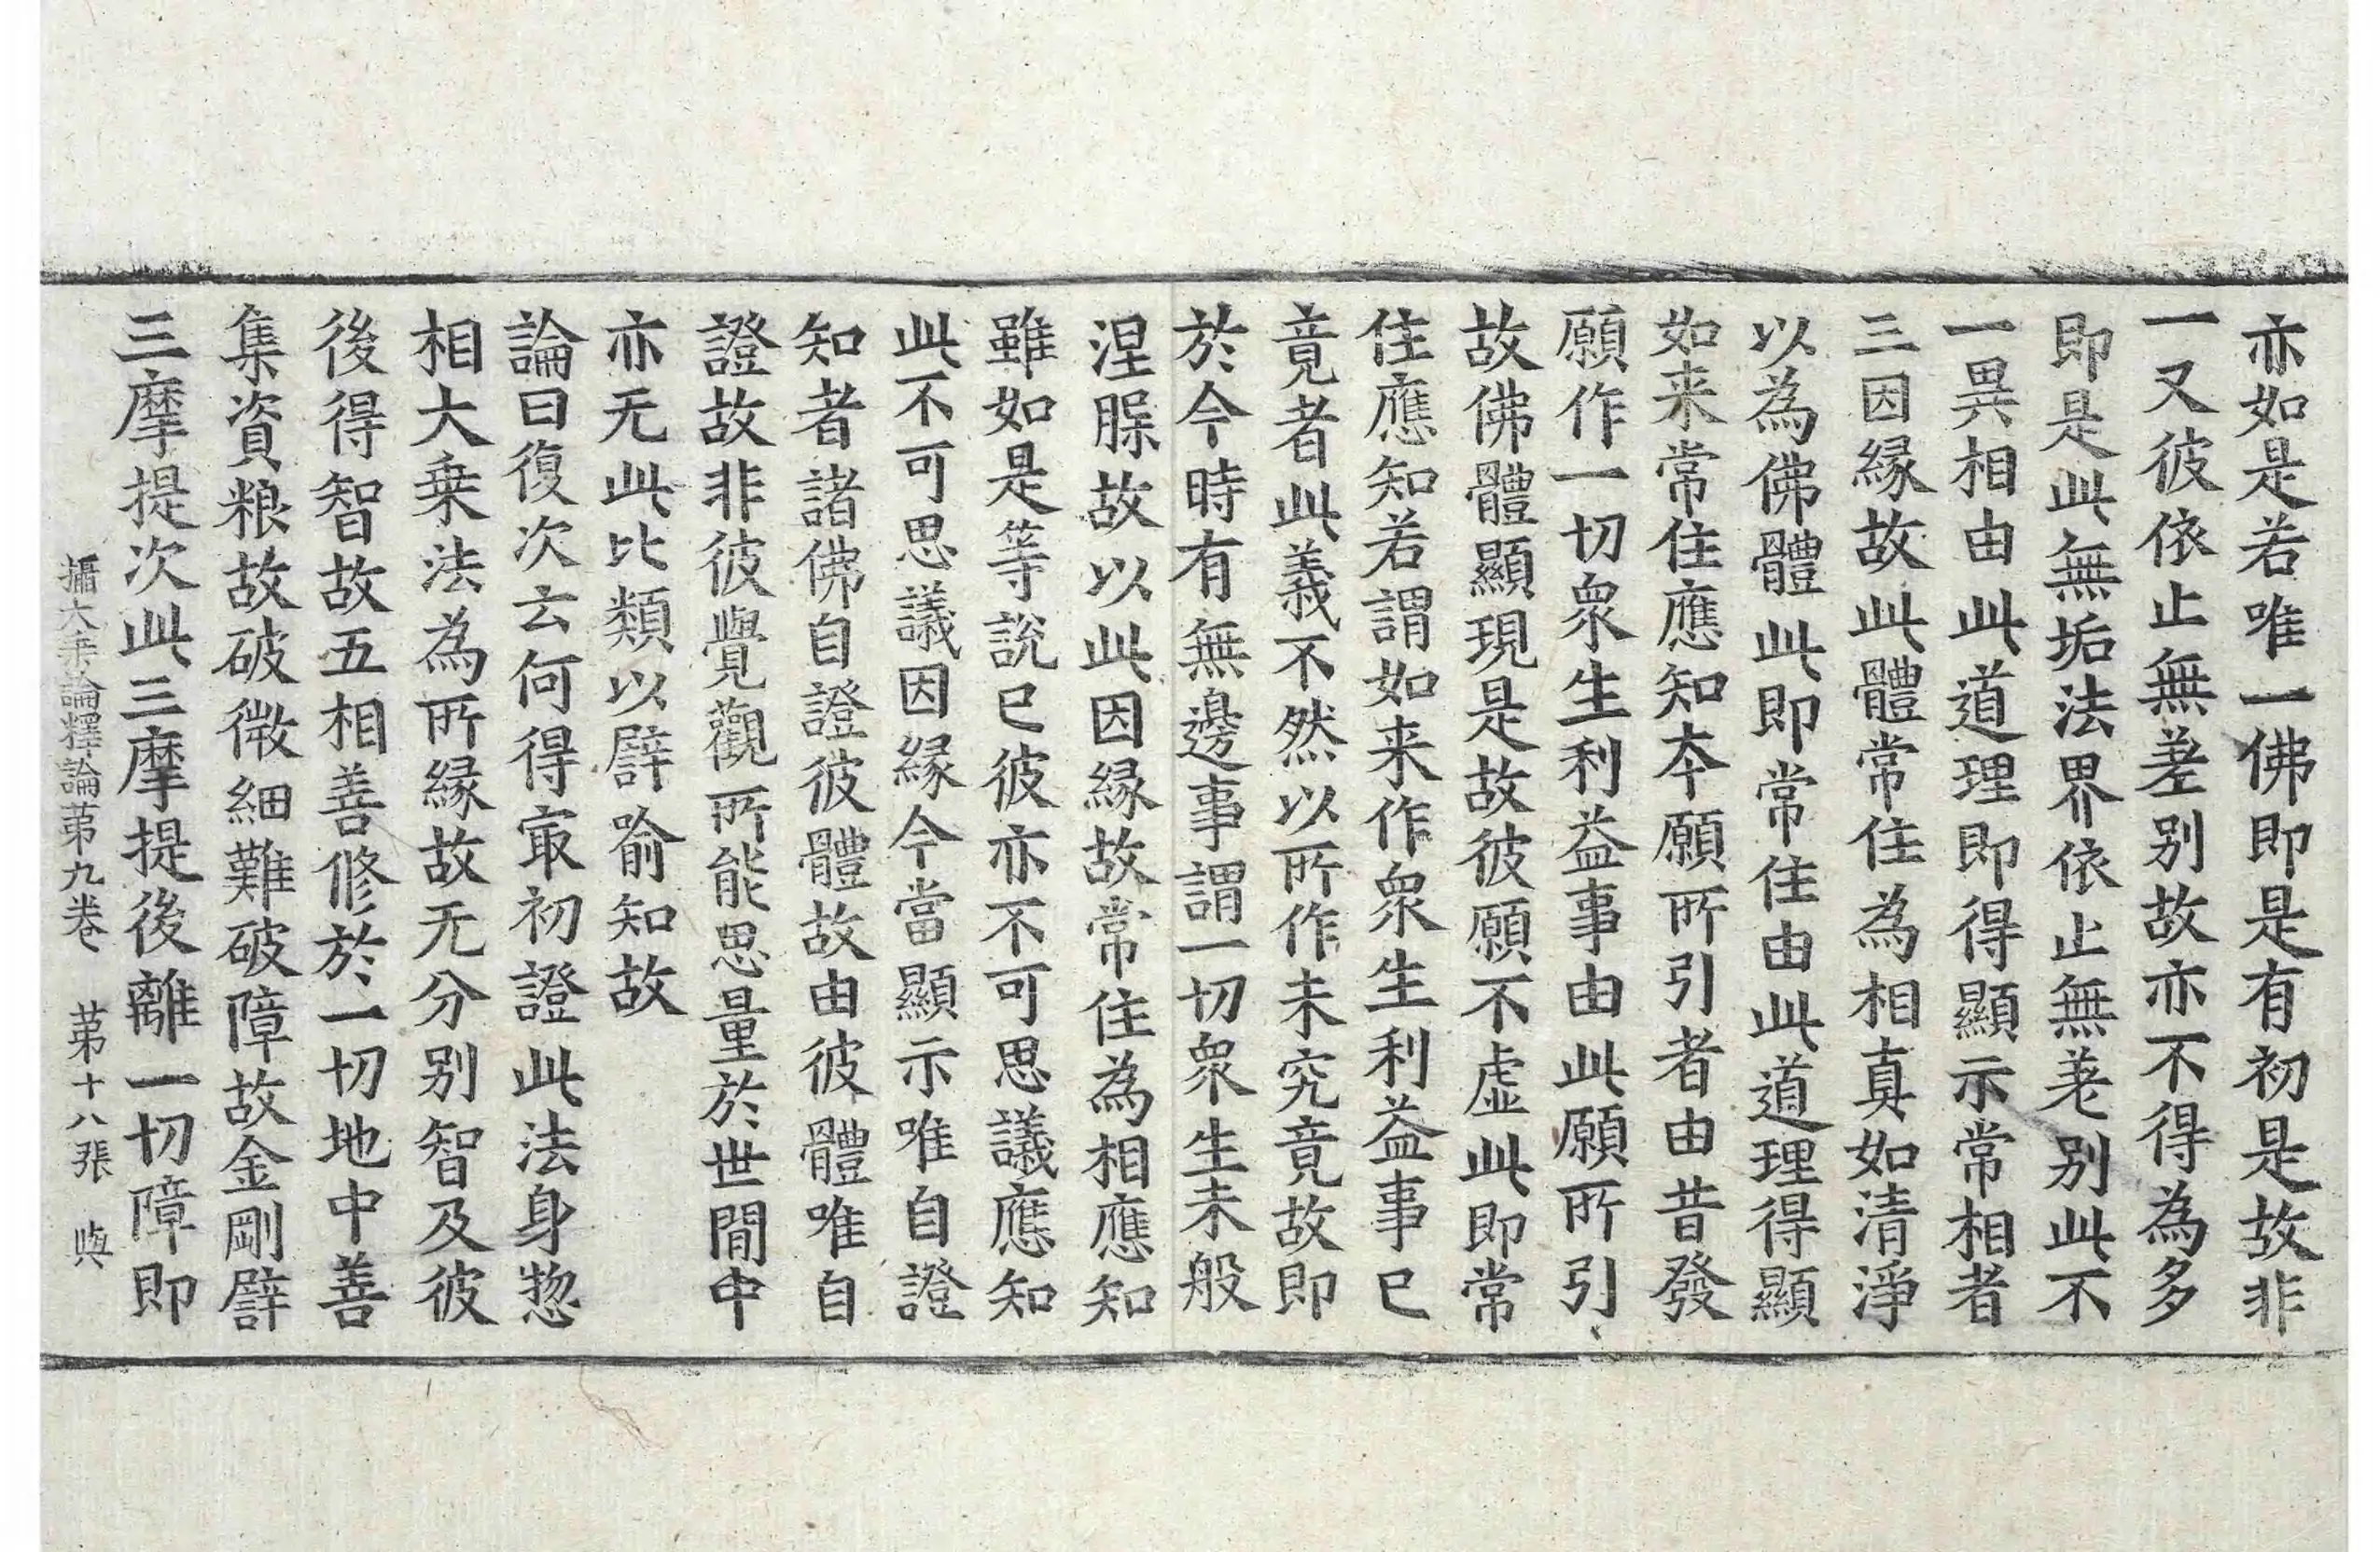 亦如是若唯一佛即是有初是故非
一又彼依止無差别故亦不得為多
即是此無垢法界依止無差别此不
一異相由此道理即得顯示常相者
三因縁故此體常住為相真如清淨
以為佛體此即常住由此道理得顯
如来常住應知本願所引者由昔發
願作一切衆生利益事由此願所引
故佛體顯現是故彼願不虛此即常
住應知若謂如来作衆生利益事已
竟者此義不然以所作未究竟故即
於今時有無邊事謂一切衆生未般
涅槃故以此因縁故常住為相應知
雖如是等說已彼亦不可思議應知
此不可思議因縁今當顯示唯自證
知者諸佛自證彼體故由彼體唯自
證故非彼覺觀所能思量於世間中
亦无此比類以譬喻知故
論曰復次云何得㝡初證此法身惣
相大乗法為所縁故无分别智及彼
後得智故五相善修於一切地中善
集資粮故破微細難破障故金剛譬
三摩提次此三摩提後離一切障即
攝大乗論釋論苐九卷 苐十八張 與